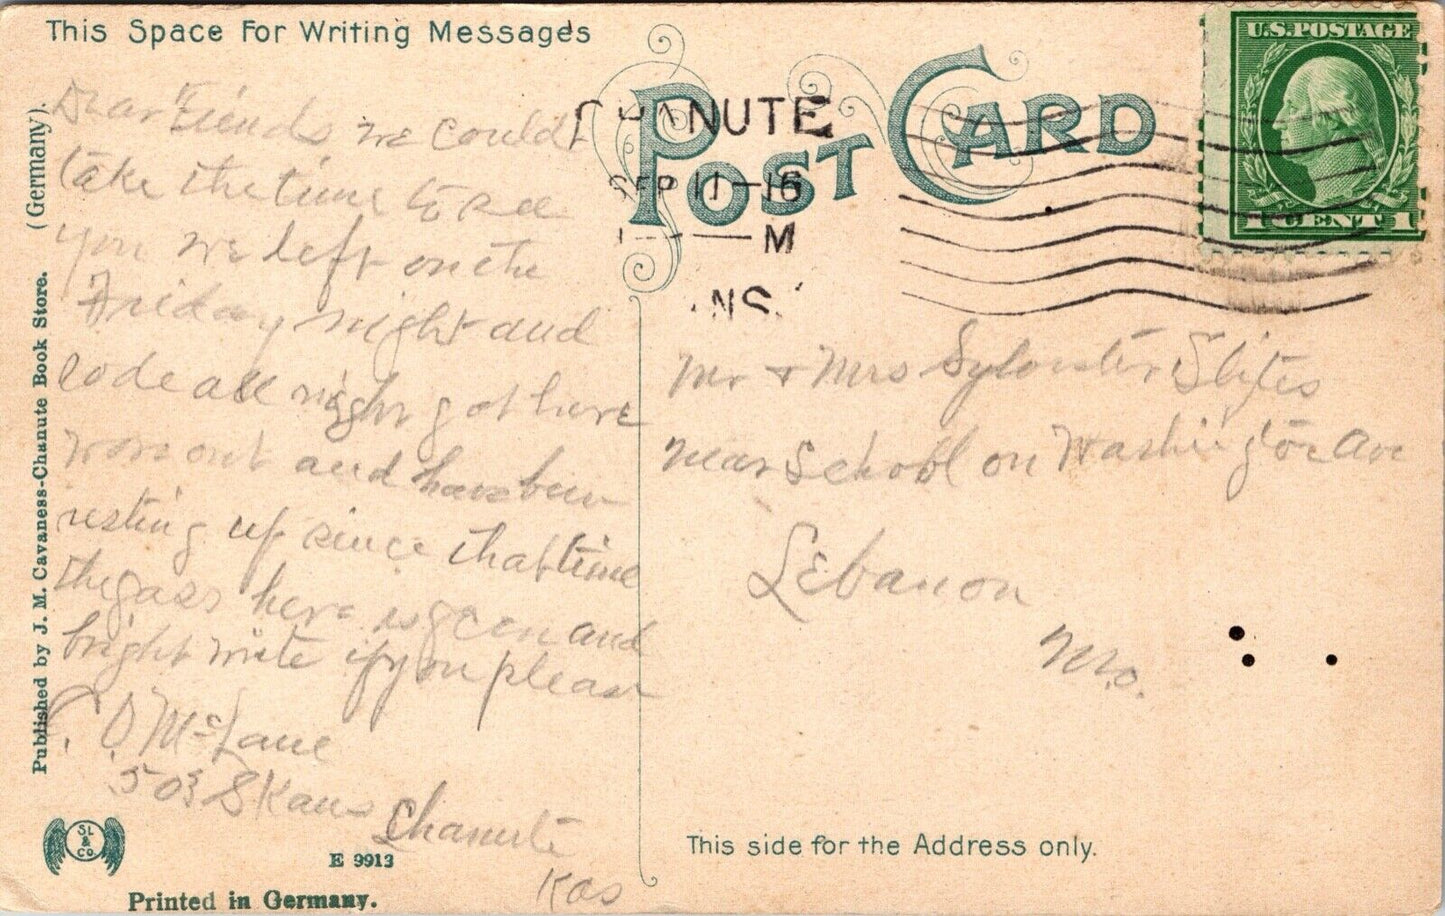 This Space For Writing Messages
POST CARD
U.S. POSTAGE
1 CENT 1
CHANUTE
SEP 11-16
M
NS.
Dear Friends we could
take the time to see
you we left on the
Friday night and
rode all night got here
worn out and have been
resting up since that time
the gass here is green and
bright write if you please
C. O. McLane
503 S Kans
Chanute
Kas
Mr & Mrs Sylvester Stites
near School on Washington Ave
Lebanon
Mo.
Published by J. M. Cavaness-Chanute Book Store. (Germany).
SL & Co.
E 9913
Printed in Germany.
This side for the Address only.